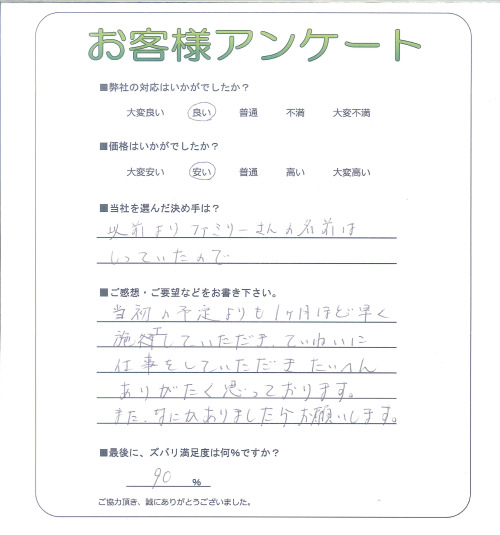 お客様アンケート
■弊社の対応はいかがでしたか？
大変良い 良い 普通 不満 大変不満
■価格はいかがでしたか？
大変安い 安い 普通 高い 大変高い
■当社を選んだ決め手は？
以前より ファミリーさんの名前は
しっていたので
■ご感想・ご要望などをお書き下さい。
当初の予定よりも1ヶ月ほど早く
施工していただき、ていねいに
仕事をしていただき たいへん
ありがたく思っております。
また、なにかありましたらお願いします。
■最後に、ズバリ満足度は何%ですか？
90 %
ご協力頂き、誠にありがとうございました。